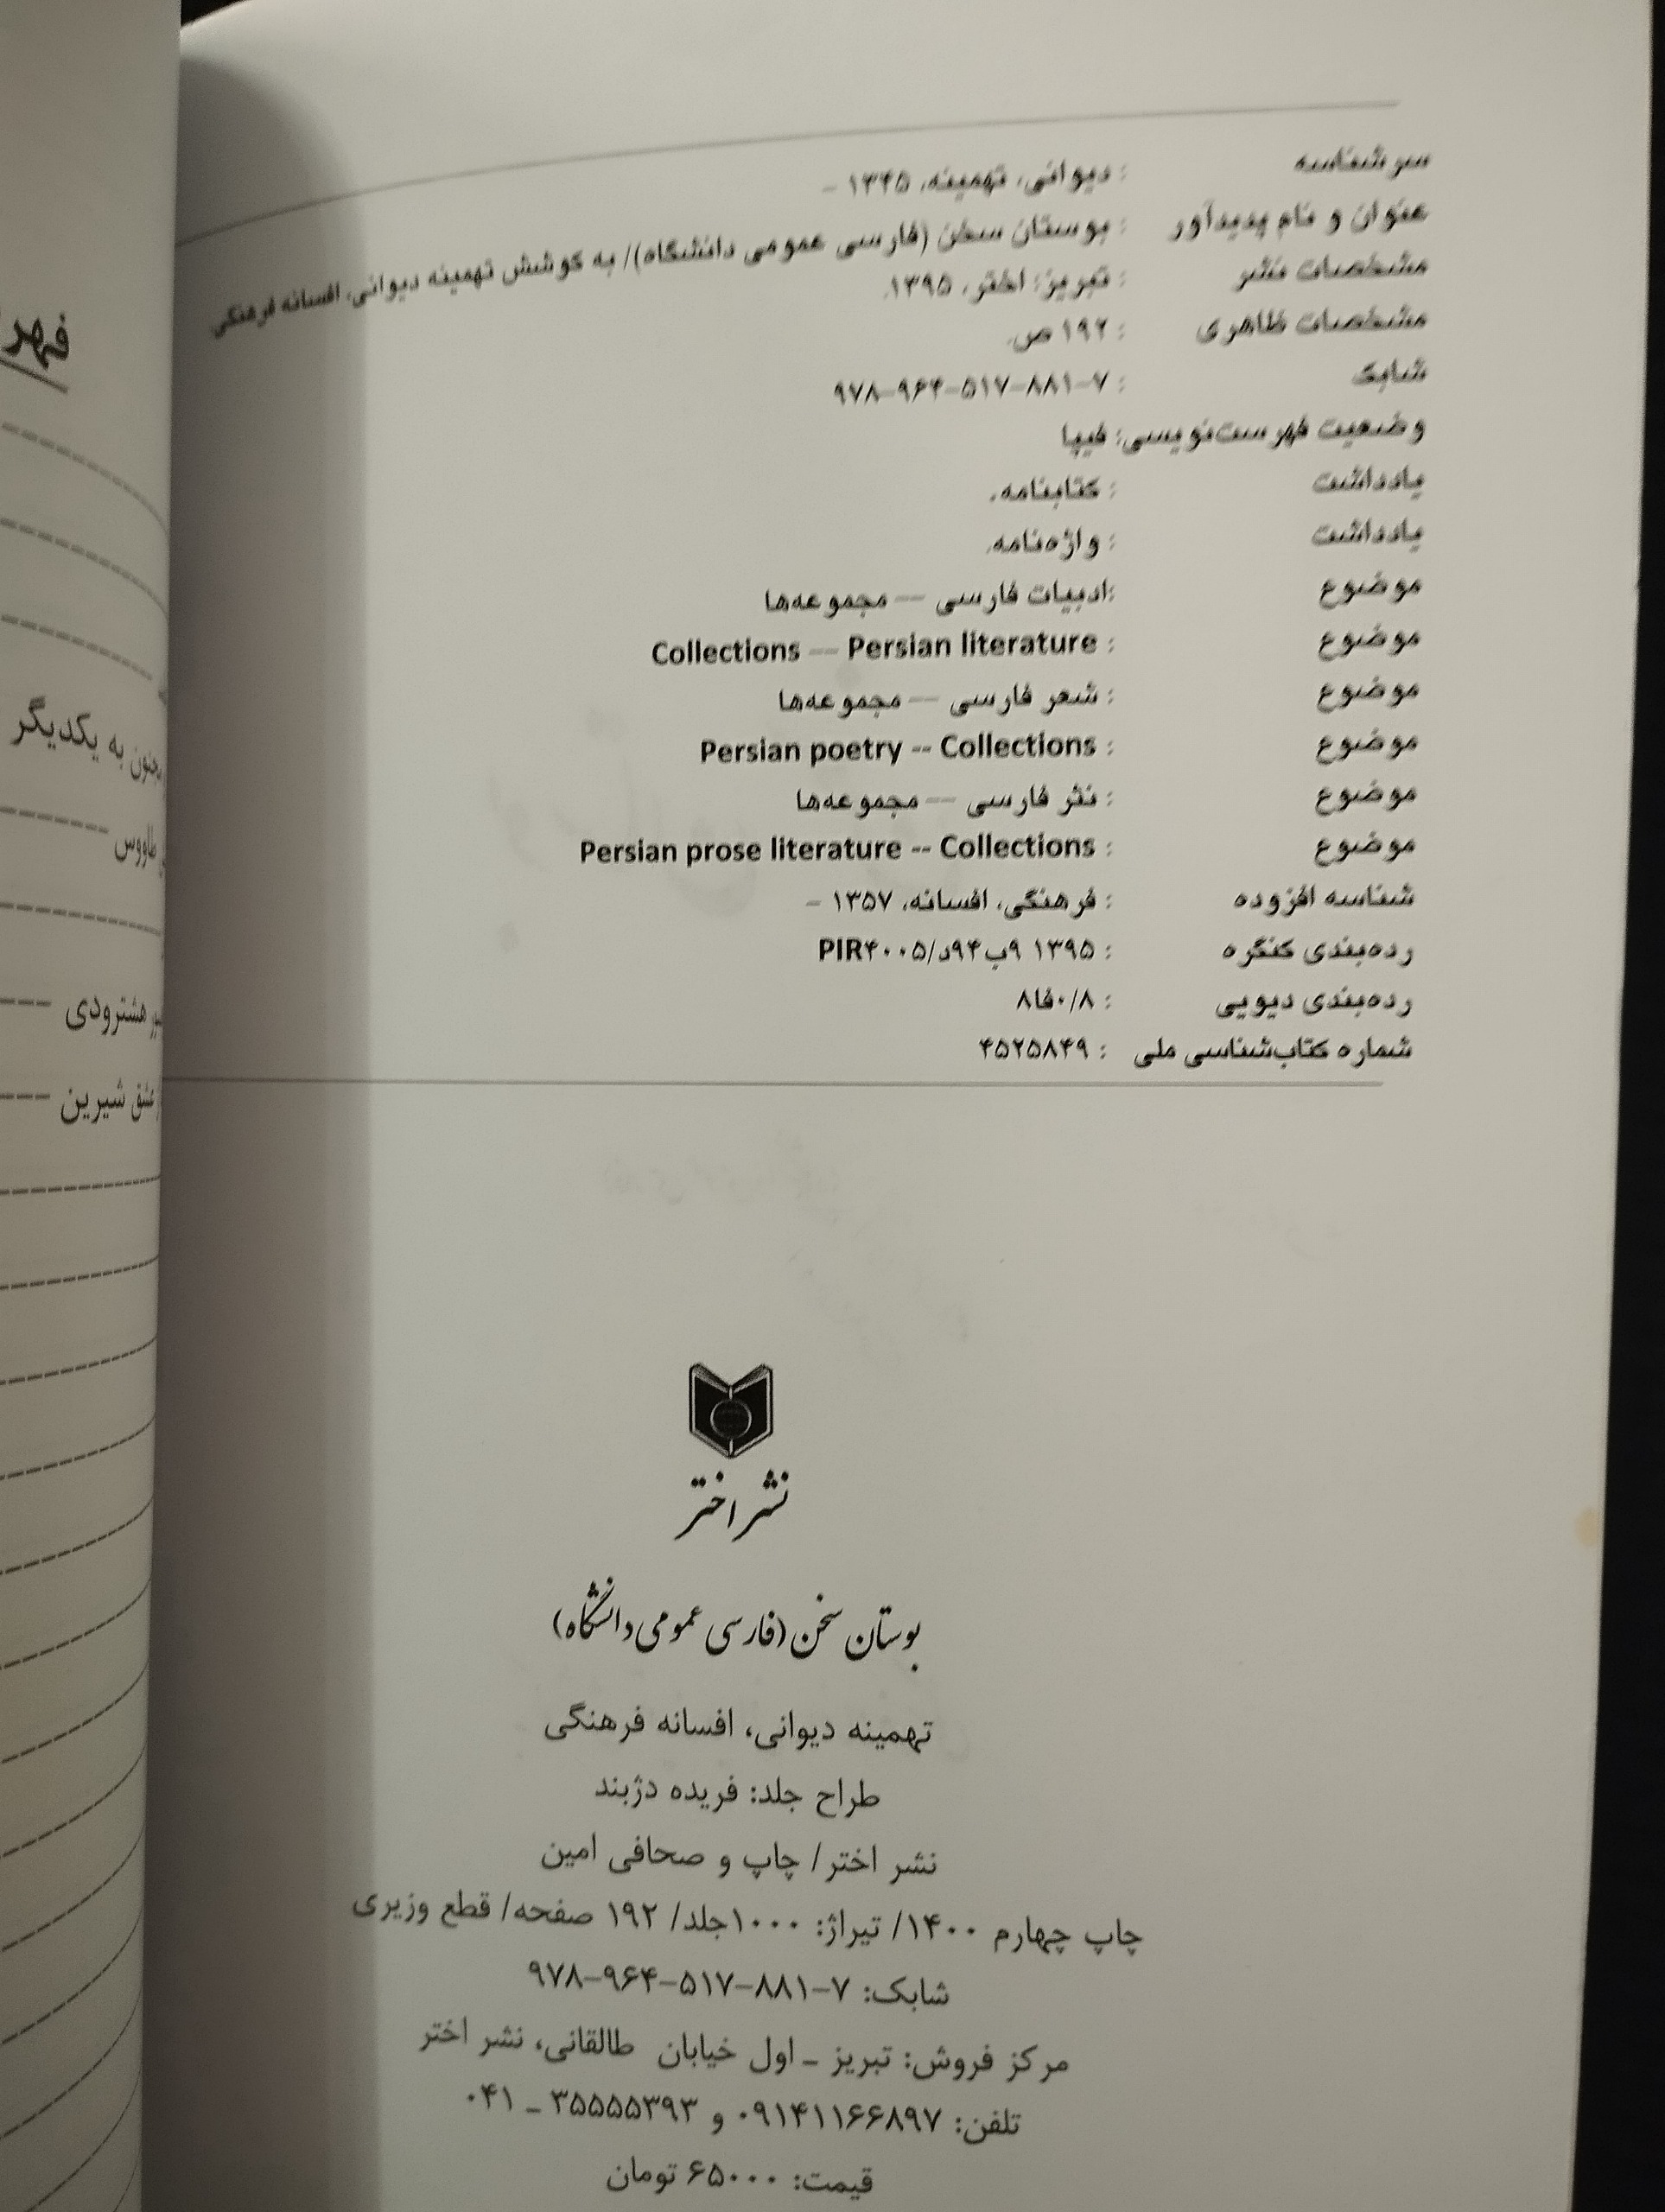 سرشناسه : دیوانی، تهمینه، ۱۳۴۵ -
عنوان و نام پدیدآور : بوستان سخن (فارسی عمومی دانشگاه)/ به کوشش تهمینه دیوانی، افسانه فرهنگی
مشخصات نشر : تبریز: اختر، ۱۳۹۵.
مشخصات ظاهری : ۱۹۲ ص.
شابک : ۹۷۸-۹۶۴-۵۱۷-۸۸۱-۷
وضعیت فهرست‌نویسی: فیپا
یادداشت : کتابنامه.
یادداشت : واژه‌نامه.
موضوع :ادبیات فارسی -- مجموعه‌ها
موضوع : Collections -- Persian literature
موضوع : شعر فارسی -- مجموعه‌ها
موضوع : Persian poetry -- Collections
موضوع : نثر فارسی -- مجموعه‌ها
موضوع : Persian prose literature -- Collections
شناسه افزوده : فرهنگی، افسانه، ۱۳۵۷ -
رده‌بندی کنگره : ۱۳۹۵ ۹ب۹۴د/PIR۴۰۰۵
رده‌بندی دیویی : ۸فا۰/۸
شماره کتاب‌شناسی ملی : ۴۵۲۵۸۴۹
نشر اختر
بوستان سخن (فارسی عمومی دانشگاه)
تهمینه دیوانی، افسانه فرهنگی
طراح جلد: فریده دژبند
نشر اختر/ چاپ و صحافی امین
چاپ چهارم ۱۴۰۰/ تیراژ: ۱۰۰۰جلد/ ۱۹۲ صفحه/ قطع وزیری
شابک: ۹۷۸-۹۶۴-۵۱۷-۸۸۱-۷
مرکز فروش: تبریز ـ اول خیابان طالقانی، نشر اختر
تلفن: ۰۹۱۴۱۱۶۶۸۹۷ و ۳۵۵۵۵۳۹۳ ـ ۰۴۱
قیمت: ۶۵۰۰۰ تومان
به یکدیگر
طاووس
هشترودی
عشق شیرین